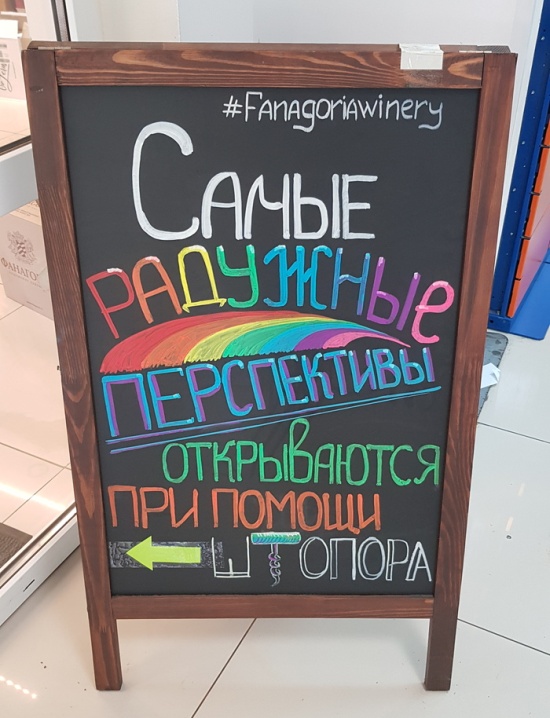 #Fanagoriawinery
Самые
радужные
перспективы
открываются
при помощи
штопора
ФАНАГО